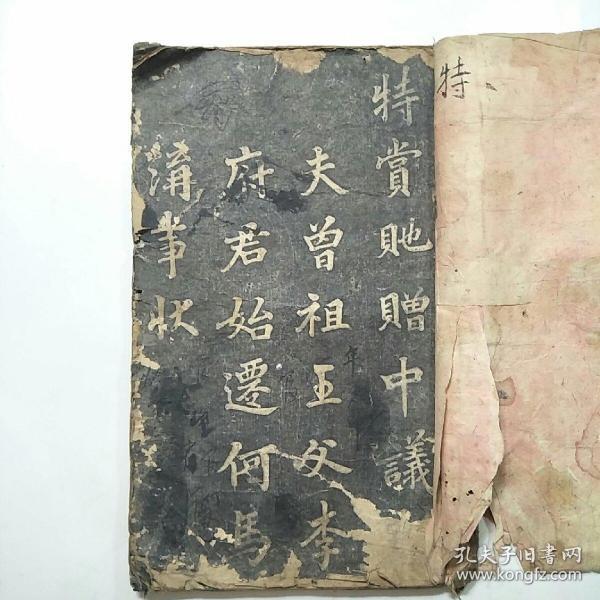 特賞貤贈中議
夫曾祖王父李
府君始遷何馬
事狀
特
孔夫子旧書网
www.kongfz.com